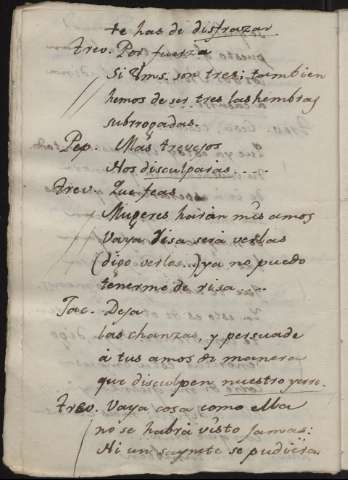 te has de disfrazar.
Trev. Por fuerza
Si Vms. son tres; tambien
hemos de ser tres las hembras
subrrogadas.
Pep. Mas trevejos
Nos disculparàs....
Trev. Que feas
Mugeres haràn mis amos
Vaya Risa serà verlas
(digo verlos...) ya no puedo
tenerme de risa....
Jac. Deja
las chanzas, y persuade
à tus amos de manera
que disculpen nuestro yerro.
Trev. Vaya cosa como ella
no se habrà visto jamas:
Ni un saynete se pudiera